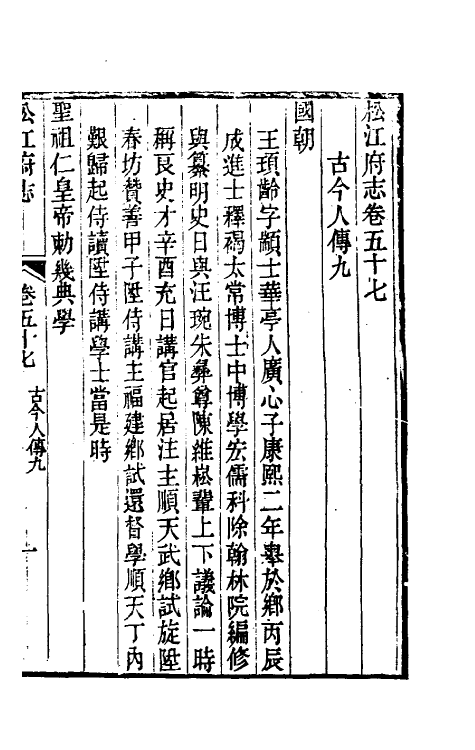 松江府志卷五十七
古今人傳九
國朝
王頊齡字顓士華亭人廣心子康熙二年舉於鄉丙辰
成進士釋褐太常博士中博學宏儒科除翰林院編修
與纂明史日與汪琬朱彝尊陳維崧輩上下議論一時
稱良史才辛酉充日講官起居注主順天武鄉試旋陞
春坊贊善甲子陞侍講主福建鄉試還督學順天丁內
艱歸起侍讀陞侍講學士當是時
聖祖仁皇帝勅幾典學
松江府志
卷五十七
古今人傳九
一